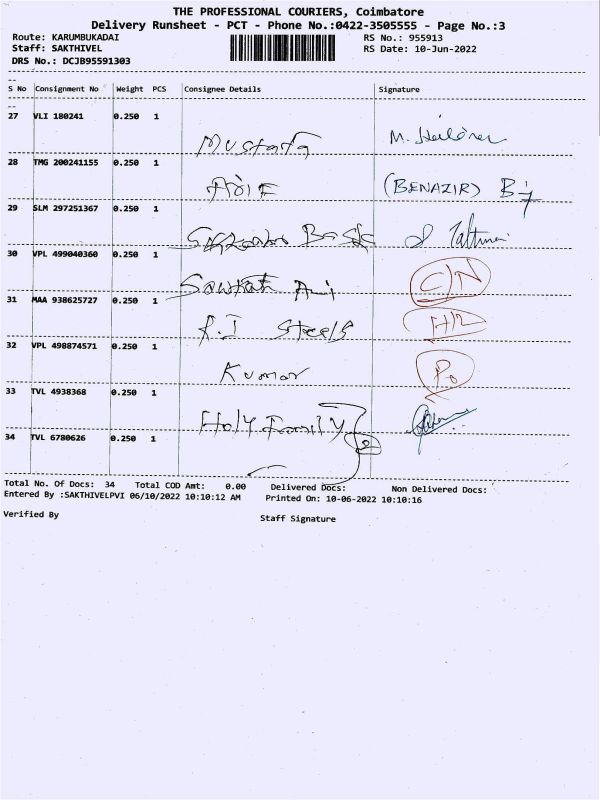 THE PROFESSIONAL COURIERS, Coimbatore
Delivery Runsheet - PCT - Phone No.:0422-3505555 - Page No.:3
Route: KARUMBUKADAI RS No.: 955913
Staff: SAKTHIVEL RS Date: 10-Jun-2022
DRS No.: DCJB95591303
S No Consignment No Weight PCS Consignee Details Signature
27 VLI 180241 0.250 1
Mustafa M.
28 TMG 200241155 0.250 1
(BENAZIR)
29 SLM 297251367 0.250 1
30 VPL 499040360 0.250 1
C/N
31 MAA 938625727 0.250 1
R.I Steels
32 VPL 498874571 0.250 1
Kumar
33 TVL 4938368 0.250 1
Holy Family
34 TVL 6780626 0.250 1
Total No. Of Docs: 34 Total COD Amt: 0.00 Delivered Docs: Non Delivered Docs:
Entered By :SAKTHIVELPVI 06/10/2022 10:10:12 AM Printed On: 10-06-2022 10:10:16
Verified By Staff Signature